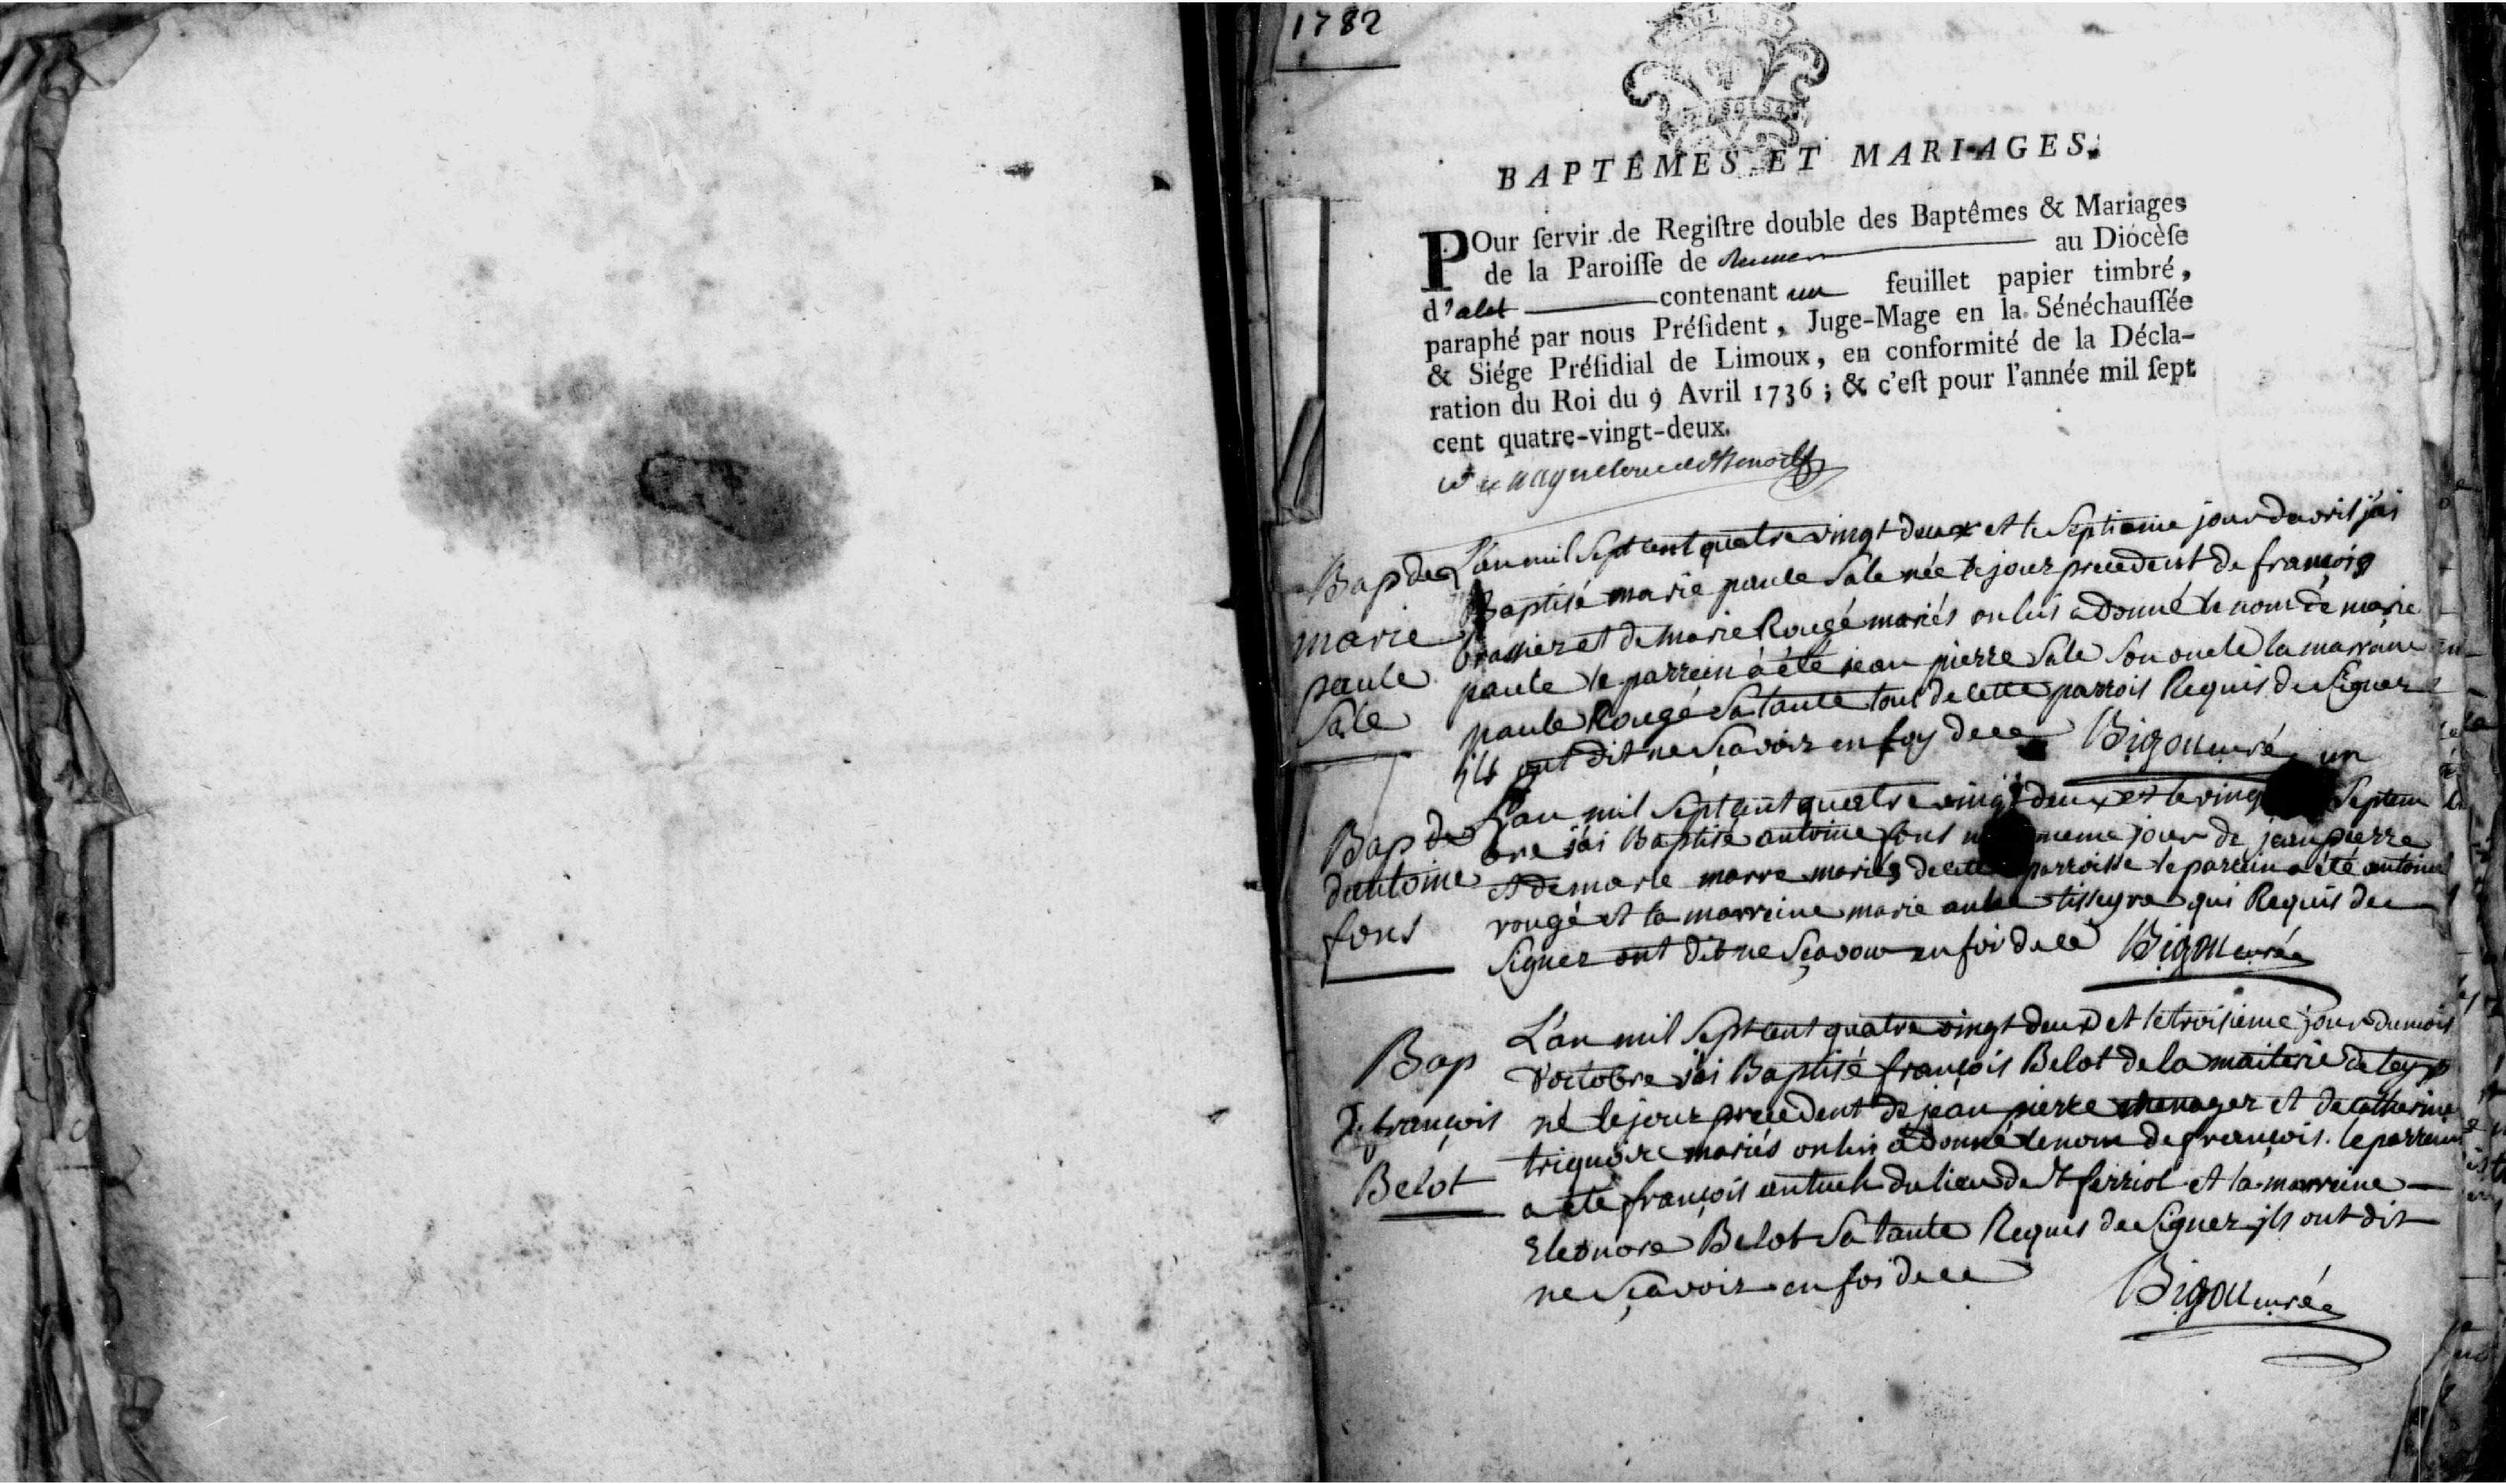 1782
BAPTÊMES ET MARIAGES.
POur ſervir de Regiſtre double des Baptêmes & Mariages
de la Paroiſſe de au Diocèſe
d'alet contenant un feuillet papier timbré,
paraphé par nous Préſident, Juge-Mage en la Sénéchauſſée
& Siége Préſidial de Limoux, en conformité de la Décla-
ration du Roi du 9 Avril 1736 ; & c'eſt pour l'année mil ſept
cent quatre-vingt-deux.
Bap de
marie
paule
Sale
L'an mil Sept cent quatre vingt deux et le Septieme jour d'avril j'ai
Baptisé marie paule Sale née le jour precedent de françois
brassier et de marie Rougé mariés on lui a donné le nom de marie
paule le parrein a été jean pierre Sale Son oncle la marraine
paule Rougé Sa tante tout de cette parrois Requis de Signer
ils ont dit ne Sçavoir en foy de ce Bigou curé
Bap de
d'antoine
fons
L'an mil Sept cent quatre vingt deux et le vingt un Septem
bre j'ai Baptisé antoine fons meme jour de jean pierre
et de marie marre mariés de cette parroisse le parrein a été antoine
rougé et la marreine marie tisseyre qui Requis de
Signer ont dit ne Sçavoir en foi de ce Bigou curé
Bap
de françois
Belot
L'an mil Sept cent quatre vingt deux et le troisieme jour du mois
d'octobre j'ai Baptisé françois Belot de la maiterie de
né le jour precedent de jean pierre menager et de catherine
triquoire mariés on lui a donné le nom de françois. le parrein
a été françois du lieu de St ferriol et la marreine
Eleonore Belot Sa tante Requis de Signer ils ont dit
ne Sçavoir en foi de ce
Bigou curé